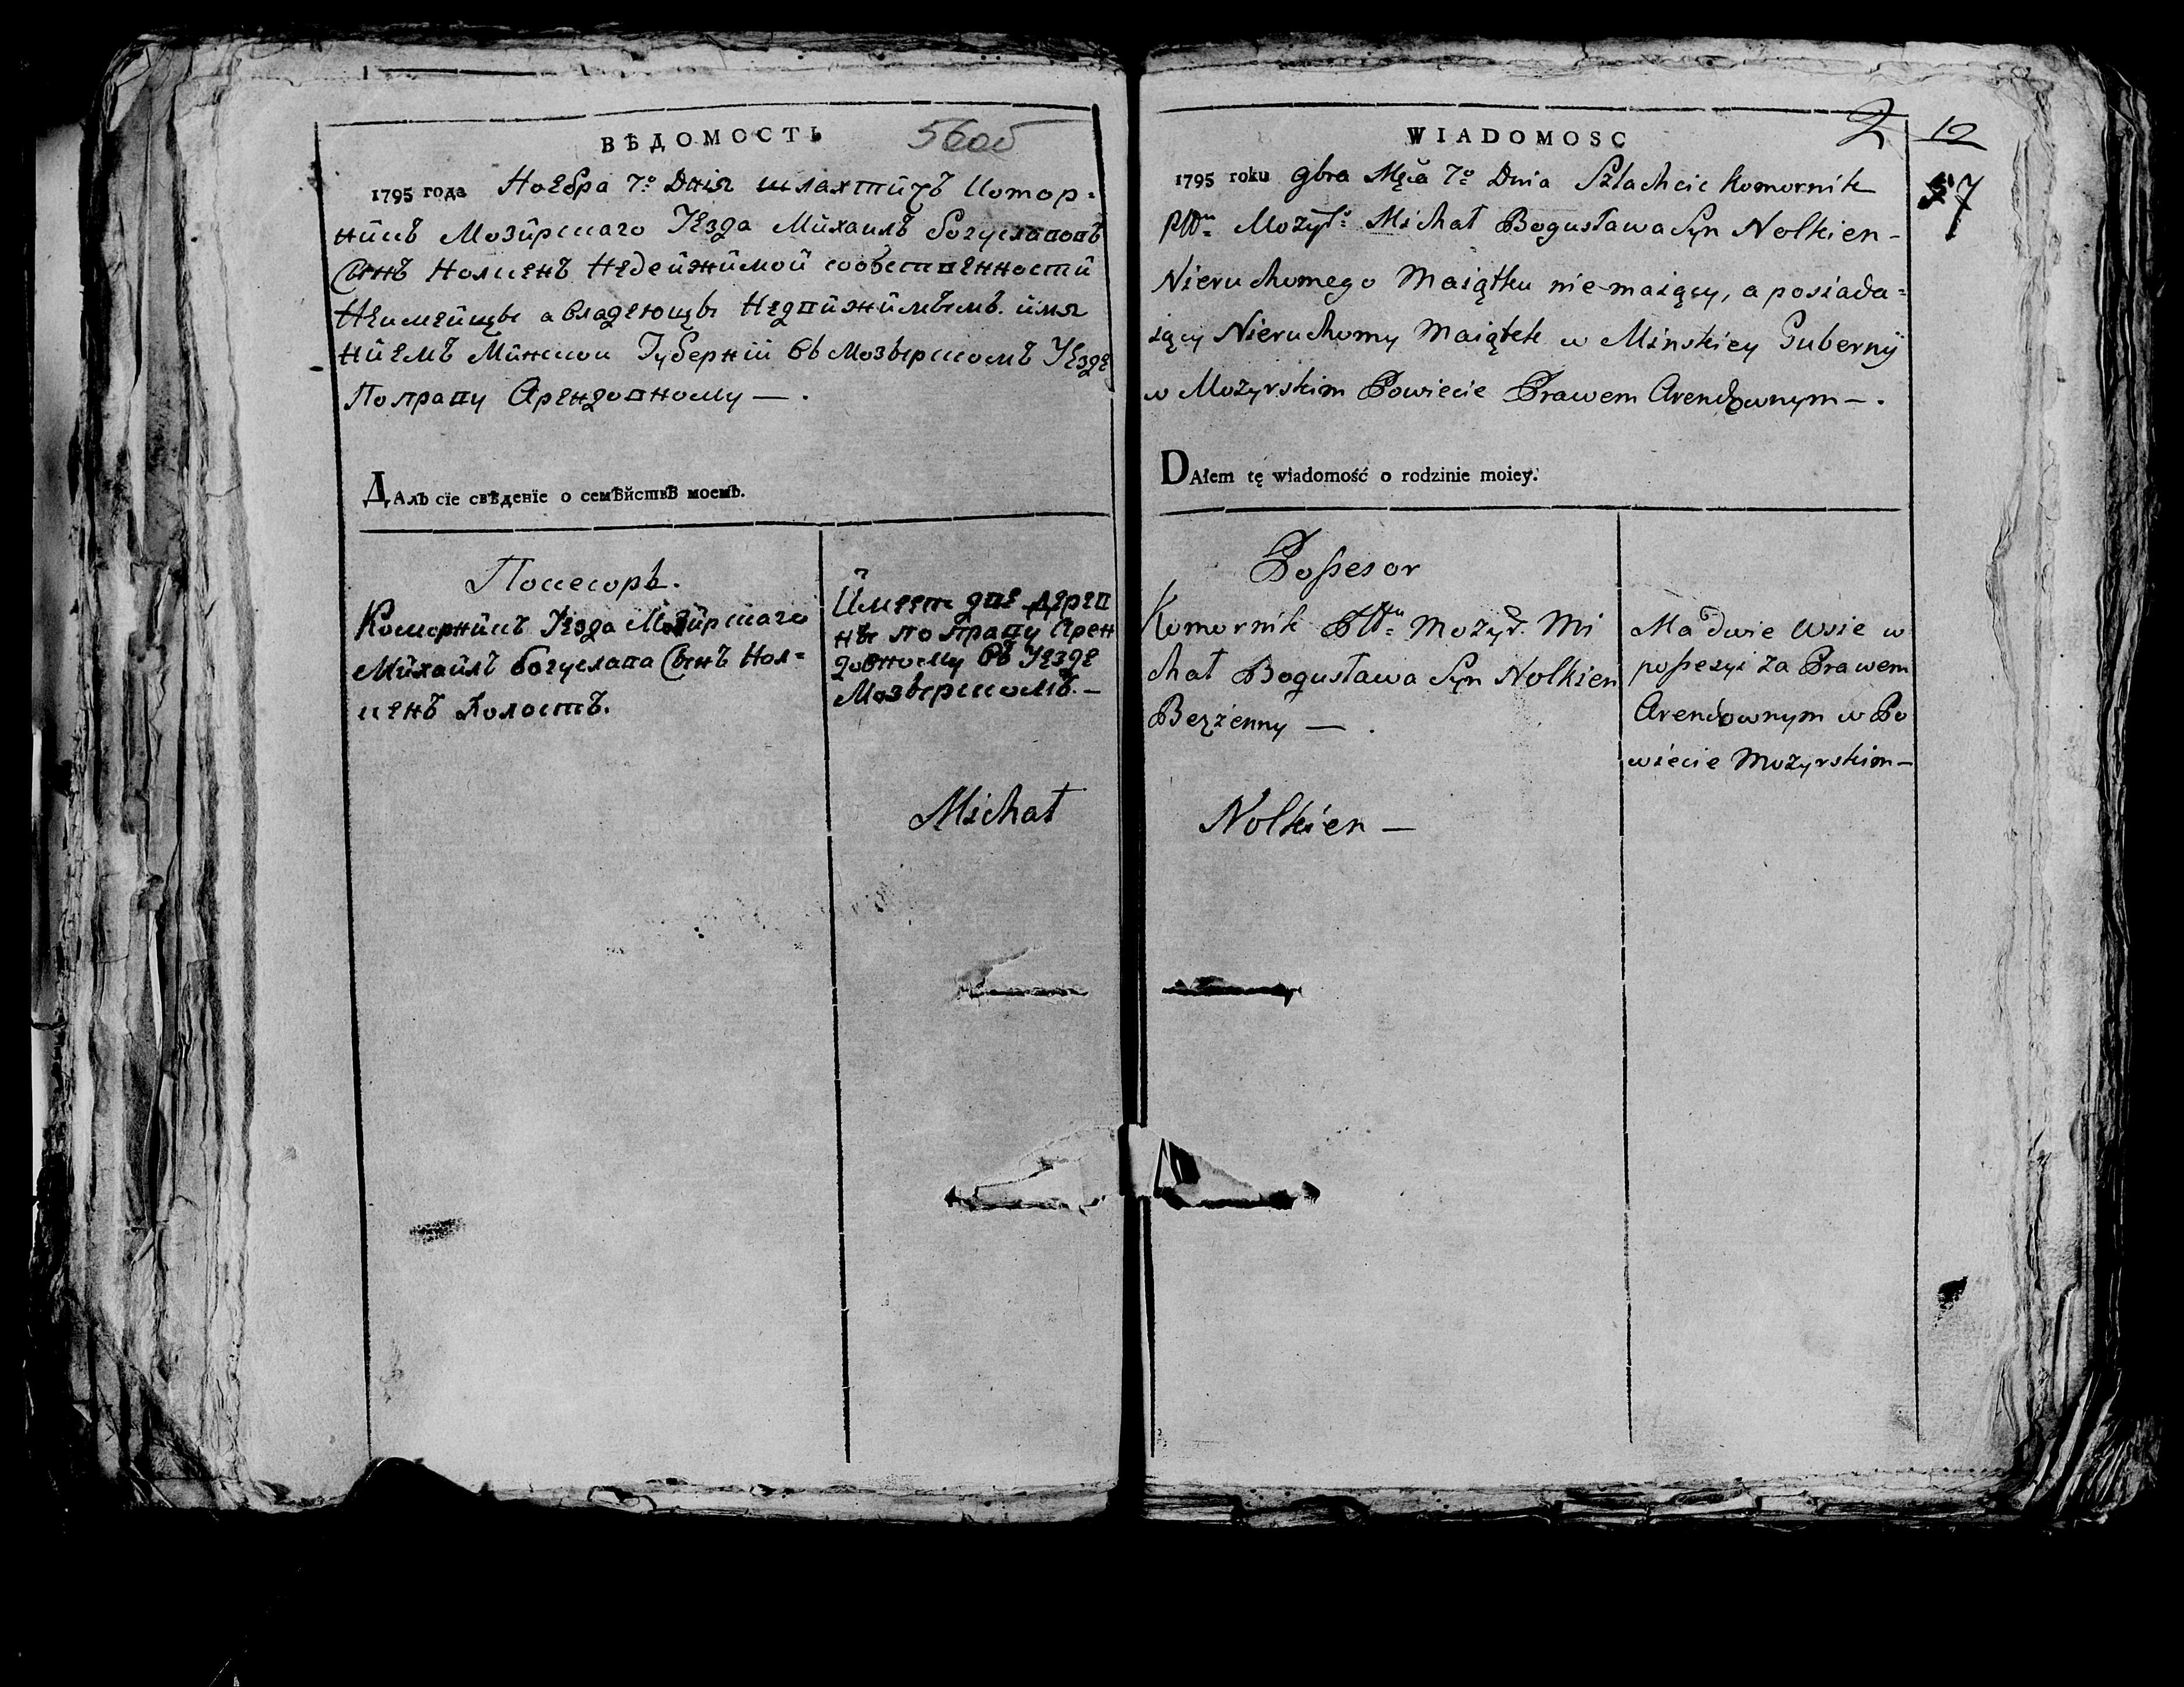 ВѢДОМОСТЬ 56об
1795 года Ноебра 7º Дніа шлахтичъ Комор=
никъ Мозирскаго Уезда Михаилъ богуславовъ
Сынъ Нолкенъ Недвижимой собственности
Неимеищы авладеющы Недвижимымъ имя
нием Минской Губерніи въ Мозырскомъ Уезде
По праву Арендовному — .
Далъ сїе свѣденїе о семѣйствѣ моемъ.
Посесоръ.
Коморникъ Уезда Мозирскаго
Михаилъ богуслава Сынъ Нол=
кенъ Холостъ.
Имеетъ две Дерев
ны по праву Арен
довному въ Уезде
Мозырскомъ. —
Michał
WIADOMOSC 2 12
57
1795 roku 9bra Mca 7º Dnia Szlachcic Komornik
Pttu Mozyrs: Michał Bogusława Syn Nolkien -
Nieruchomego Maiątku nie maiący, a posiada=
iący Nieruchomy Maiątek w Minskiey Guberny
w Mozyrskim Powiecie Prawem Arendownym — .
DAłem tę wiadomość o rodzinie moiey.
Possesor
Komornik Pttu Mozyr. Mi
chał Bogusława Syn Nolkien
Bezżenny — .
Ma dwie Wsie w
possesyi za Prawem
Arendownym w Po
wiecie Mozyrskim —
Nolkien —